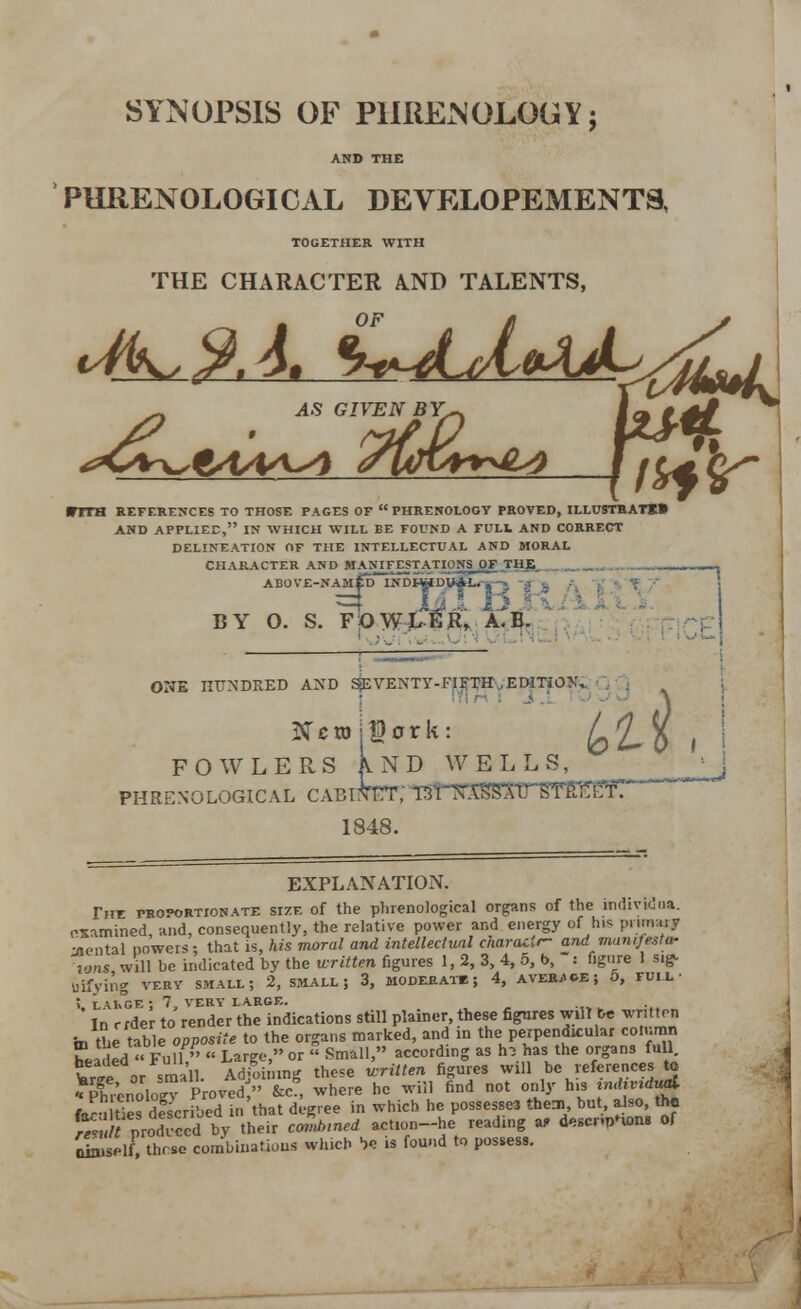 SYNOPSIS OF PHRENOLOGY;
AND THE
PHRENOLOGICAL DEVELOPEMENTS,
TOGETHER WITH
THE CHARACTER AND TALENTS,
OF
AS GIVEN BY
WITH REFERENCES TO THOSE PAGES OF “PHRENOLOGY PROVED, ILLUSTRATED
AND APPLIED,” IN WHICH WILL BE FOUND A FULL AND CORRECT
DELINEATION OF THE INTELLECTUAL AND MORAL
CHARACTER AND MANIFESTATIONS OF THE
ABOVE-NAMED INDIVIDUAL.
LIBRARY
BY O. S. FOWLER, A.B.
ONE HUNDRED AND SEVENTY-FIFTH EDITION.
New York:
628
FOWLERS AND WELLS,
PHRENOLOGICAL CABINET, 131 NASSAU STREET.
1848.
EXPLANATION.
THE PROPORTIONATE SIZE of the phrenological organs of the individua.
examined, and, consequently, the relative power and energy of his primary
mental powers; that is, his moral and intellectual character and manifesta-
tions, will be indicated by the written figures 1, 2, 3, 4, 5, 6, 7: figure 1 sig-
nifying VERY SMALL; 2, SMALL; 3, MODERATE; 4, AVERAGE; 5, FULL;
6, LARGE; 7, VERY LARGE.
In order to render the indications still plainer, these figures will be written
in the table opposite to the organs marked, and in the perpendicular column
headed “Full,” “Large,” or “Small,” according as he has the organs full,
large, or small. Adjoining these written figures will be references to
“Phrenology Proved,” &c., where he will find not only his individual
faculties described in that degree in which he possesses them, but, also, the
result produced by their combined action—he reading as descriptions of
himself, those combinations which he is found to possess.